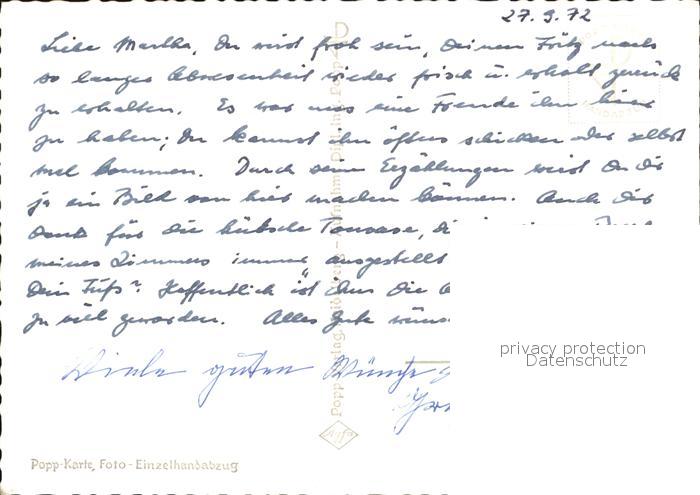 27.9.72
Liebe Martha, Du wirst froh sein, Deinen Fritz nach
so langer Abwesenheit wieder frisch u. erholt zurück
zu erhalten. Es war uns eine Freude ihn hier
zu haben; Du kannst ihn öfters schicken oder selbst
mal kommen. Durch seine Erzählungen wirst Du Dir
ja ein Bild von hier machen können. Auch Dir
Dank für die hübsche Tonvase, die
meines Zimmers immer ausgestellt
Dein Fuß? Hoffentlich ist ihm die
zu viel geworden. Alles Gute
Viele guten Wünsche
privacy protection
Datenschutz
Agfa
Popp-Karte, Foto-Einzelhandabzug